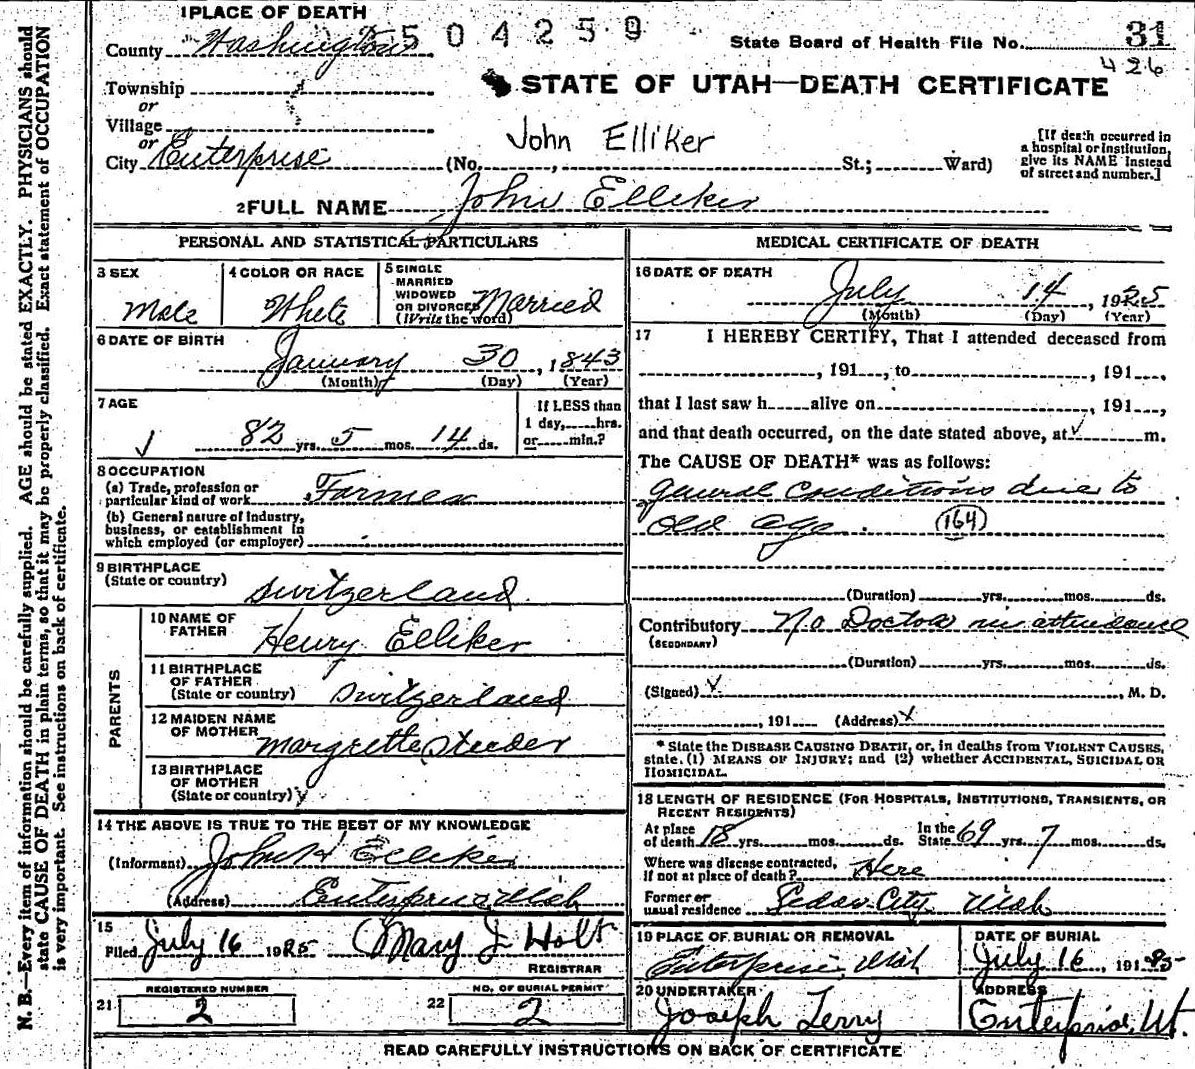 1 PLACE OF DEATH
County Washington
504259
State Board of Health File No. 31
426
Township
or
Village
or
City Enterprise
STATE OF UTAH—DEATH CERTIFICATE
John Elliker
(No. , St.; Ward)
[If death occurred in
a hospital or institution,
give its NAME instead
of street and number.]
2 FULL NAME John Elliker
PERSONAL AND STATISTICAL PARTICULARS
3 SEX
Male
4 COLOR OR RACE
White
5 SINGLE
MARRIED
WIDOWED
OR DIVORCED
(Write the word)
Married
6 DATE OF BIRTH
January 30, 1843
(Month) (Day) (Year)
7 AGE
82 yrs. 5 mos. 14 ds.
If LESS than
1 day, hrs.
or min.?
8 OCCUPATION
(a) Trade, profession or
particular kind of work Farmer
(b) General nature of industry,
business, or establishment in
which employed (or employer)
9 BIRTHPLACE
(State or country)
Switzerland
PARENTS
10 NAME OF
FATHER
Henry Elliker
11 BIRTHPLACE
OF FATHER
(State or country) Switzerland
12 MAIDEN NAME
OF MOTHER
Margrette
13 BIRTHPLACE
OF MOTHER
(State or country)
14 THE ABOVE IS TRUE TO THE BEST OF MY KNOWLEDGE
(Informant) John H Elliker
(Address) Enterprise Utah
15
Filed July 16 1925 Mary J Holt
REGISTRAR
REGISTERED NUMBER
21 2
NO. OF BURIAL PERMIT
22 2
MEDICAL CERTIFICATE OF DEATH
16 DATE OF DEATH
July 14, 1925
(Month) (Day) (Year)
17 I HEREBY CERTIFY, That I attended deceased from
, 191 , to , 191 ,
that I last saw h alive on , 191 ,
and that death occurred, on the date stated above, at m.
The CAUSE OF DEATH* was as follows:
general conditions due to
old age. 164
(Duration) yrs. mos. ds.
Contributory No Doctor in attendance
(SECONDARY)
(Duration) yrs. mos. ds.
(Signed) , M. D.
, 191 (Address)
* State the DISEASE CAUSING DEATH, or, in deaths from VIOLENT CAUSES,
state (1) MEANS OF INJURY; and (2) whether ACCIDENTAL, SUICIDAL OR
HOMICIDAL.
18 LENGTH OF RESIDENCE (FOR HOSPITALS, INSTITUTIONS, TRANSIENTS, OR
RECENT RESIDENTS)
At place
of death 18 yrs. mos. ds.
In the
State 69 yrs. 7 mos. ds.
Where was disease contracted,
If not at place of death? Here
Former or
usual residence Cedar City Utah
19 PLACE OF BURIAL OR REMOVAL
Enterprise, Utah
DATE OF BURIAL
July 16, 1925
20 UNDERTAKER
Joseph Terry
ADDRESS
Enterprise, Ut.
READ CAREFULLY INSTRUCTIONS ON BACK OF CERTIFICATE
N. B.—Every item of information should be carefully supplied. AGE should be stated EXACTLY. PHYSICIANS should
state CAUSE OF DEATH in plain terms, so that it may be properly classified. Exact statement of OCCUPATION
is very important. See instructions on back of certificate.